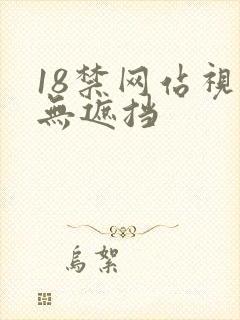 18禁网佔視
無遮挡
烏絮